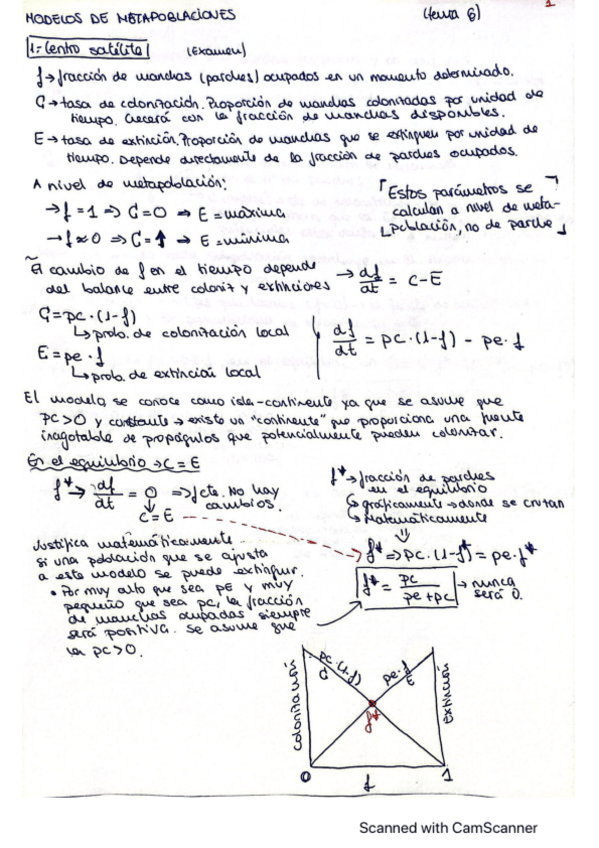 MODELOS DE METAPOBLACIONES (tema 6) 1
1- Centro satélite (Examen)
f → fracción de manchas (parches) ocupados en un momento determinado.
C → tasa de colonización. Proporción de manchas colonizadas por unidad de
tiempo. Crecerá con la fracción de manchas disponibles.
E → tasa de extinción. Proporción de manchas que se extinguen por unidad de
tiempo. Depende directamente de la fracción de parches ocupados.
A nivel de metapoblación:
→ f = 1 ⇒ C = 0 ⇒ E = máxima
→ f ≈ 0 ⇒ C = ↑ ⇒ E = mínima
Estos parámetros se
calculan a nivel de meta-
población, no de parche
El cambio de f en el tiempo depende
del balance entre coloniz y extinciones → df/dt = C-E
C = pc · (1-f)
↳ prob. de colonización local
E = pe · f
↳ prob. de extinción local
df/dt = pc · (1-f) - pe · f
El modelo se conoce como isla-continente ya que se asume que
pc>0 y constante → existe un "continente" que proporciona una fuente
inagotable de propágulos que potencialmente pueden colonizar.
En el equilibrio → C = E
f* → df/dt = 0 ⇒ f cte. No hay
cambios.
C = E
f* → fracción de parches
en el equilibrio
gráficamente → donde se cruzan
Matemáticamente
Justifica matemáticamente
si una población que se ajusta
a este modelo se puede extinguir.
• Por muy alto que sea pE y muy
pequeño que sea pc, la fracción
de manchas ocupadas siempre
será positiva. Se asume que
la pc>0.
f* ⇒ pc · (1-f*) = pe · f*
f* = pc / (pe + pc) → nunca
será 0.
colonización
pc · (1-f)
C
pe · f
E
extinción
f*
0 f 1
Scanned with CamScanner